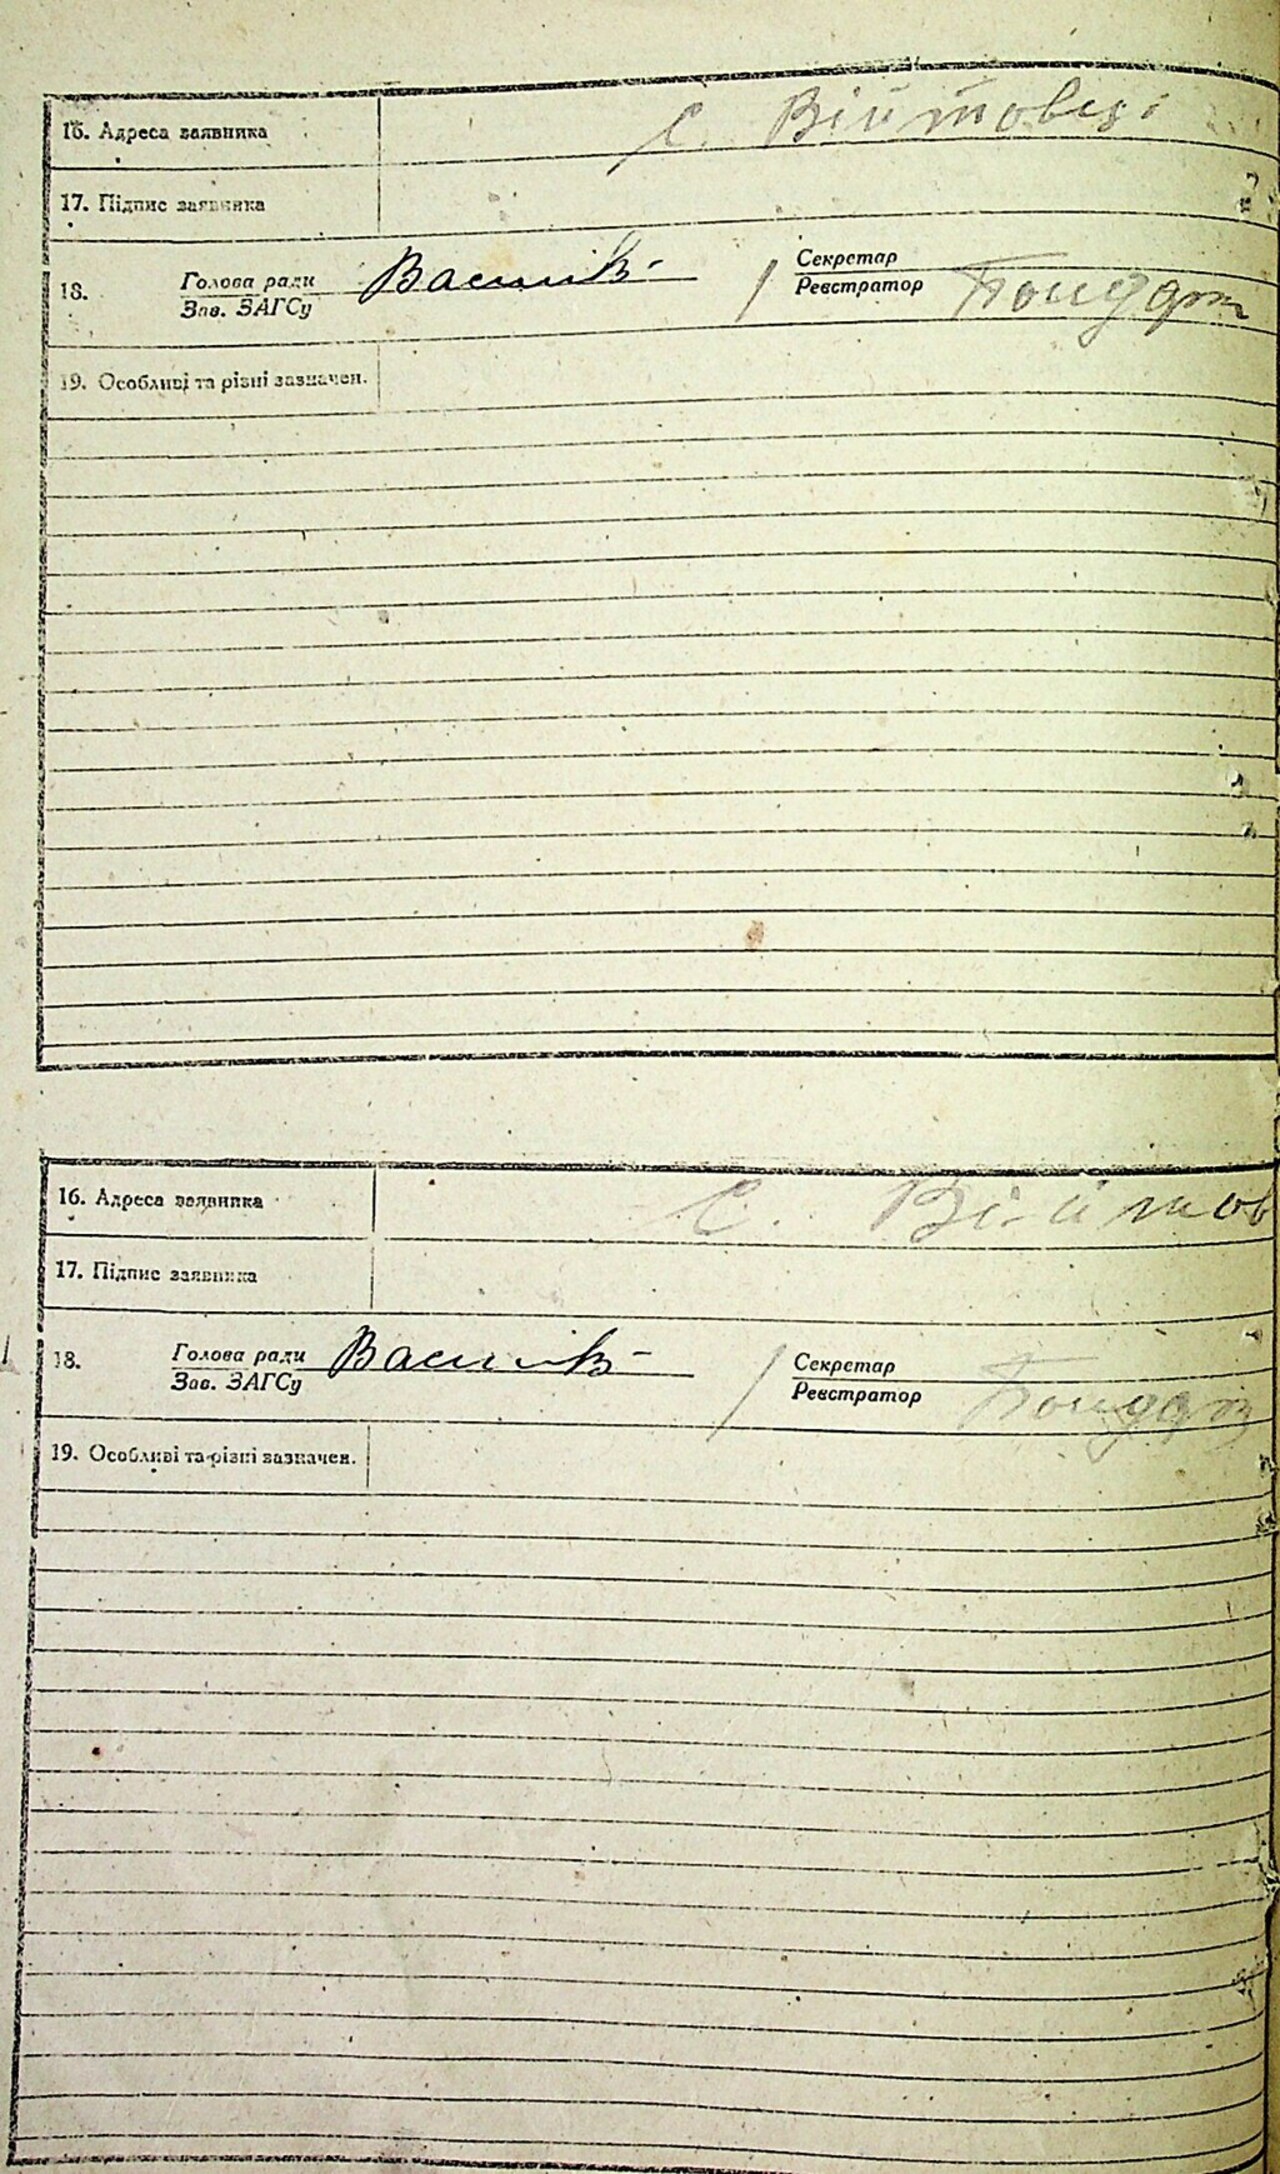 16. Адреса заявника с. Війтовці
17. Підпис заявника
18. Голова ради Секретар
Зав. ЗАГСу Реєстратор
19. Особливі та різні зазначен.
16. Адреса заявника с. Війтов
17. Підпис заявника
18. Голова ради Секретар
Зав. ЗАГСу Реєстратор
19. Особливі та різні зазначен.